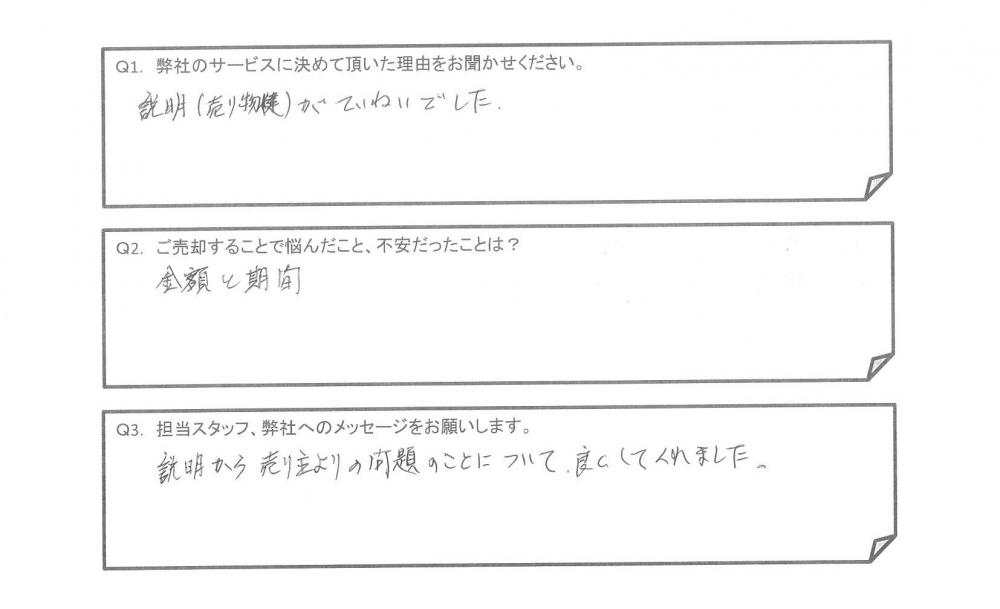 Q1. 弊社のサービスに決めて頂いた理由をお聞かせください。
説明(売り物健)がていねいでした.
Q2. ご売却することで悩んだこと、不安だったことは?
金額と期間
Q3. 担当スタッフ、弊社へのメッセージをお願いします。
説明から売り主よりの問題のことについて、良くしてくれました。